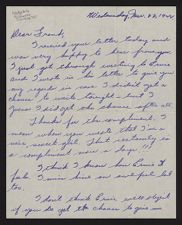 Wednesday, Mar. 22, 1944
Dear Frank,
I received your letter today and
was very happy to hear from you.
I just got through writing to Ernie
and I want in his letter to give you
my regards in case I didn't get a
chance to write tonight. And I
guess I did get the chance after all.
Thanks for the compliment. I
mean when you wrote that I'm a
nice sweet girl. That certainly is
a compliment
I think I know how Ernie
feels. I miss him an awful lot
too.
I don't think Ernie will object
if you do get the chance to give me